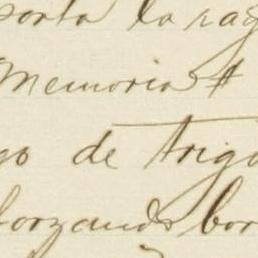 porta la rag
Memoria #
go de trigo
forzando bor